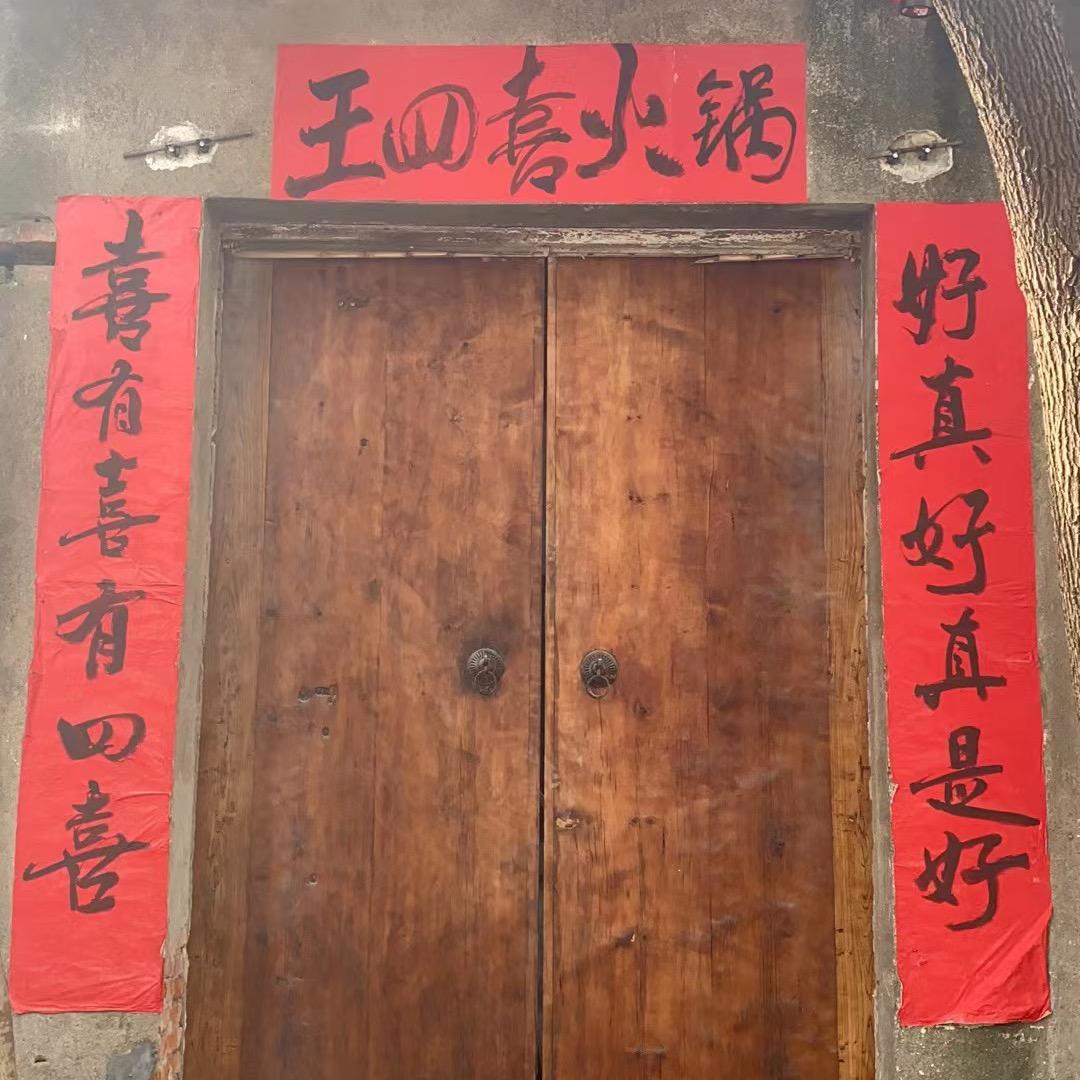 王四喜火锅
喜有喜有四喜
好真好真是好